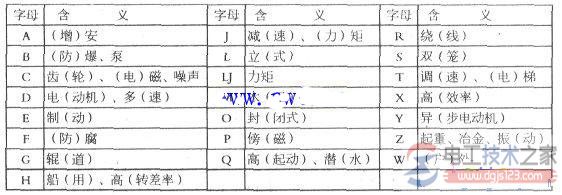 字母 含 义 字母 含 义 字母 含 义
A （增）安 J 减（速）、（力）矩 R 绕（线）
B （防）爆、泵 L 立（式） S 双（笼）
C 齿（轮）、（电）磁、噪声 LJ 力矩 T 调（速）、（电）梯
D 电（动机）、多（速） X 高（效率）
E 制（动） O 封（闭式） Y 异（步电动机）
F （防）腐 P 傍（磁） Z 起重、冶金、振（动）
G 辊（道） Q 高（起动）、潜（水） W
H 船（用）、高（转差率）
电工技术之家
www.dgjs123.com